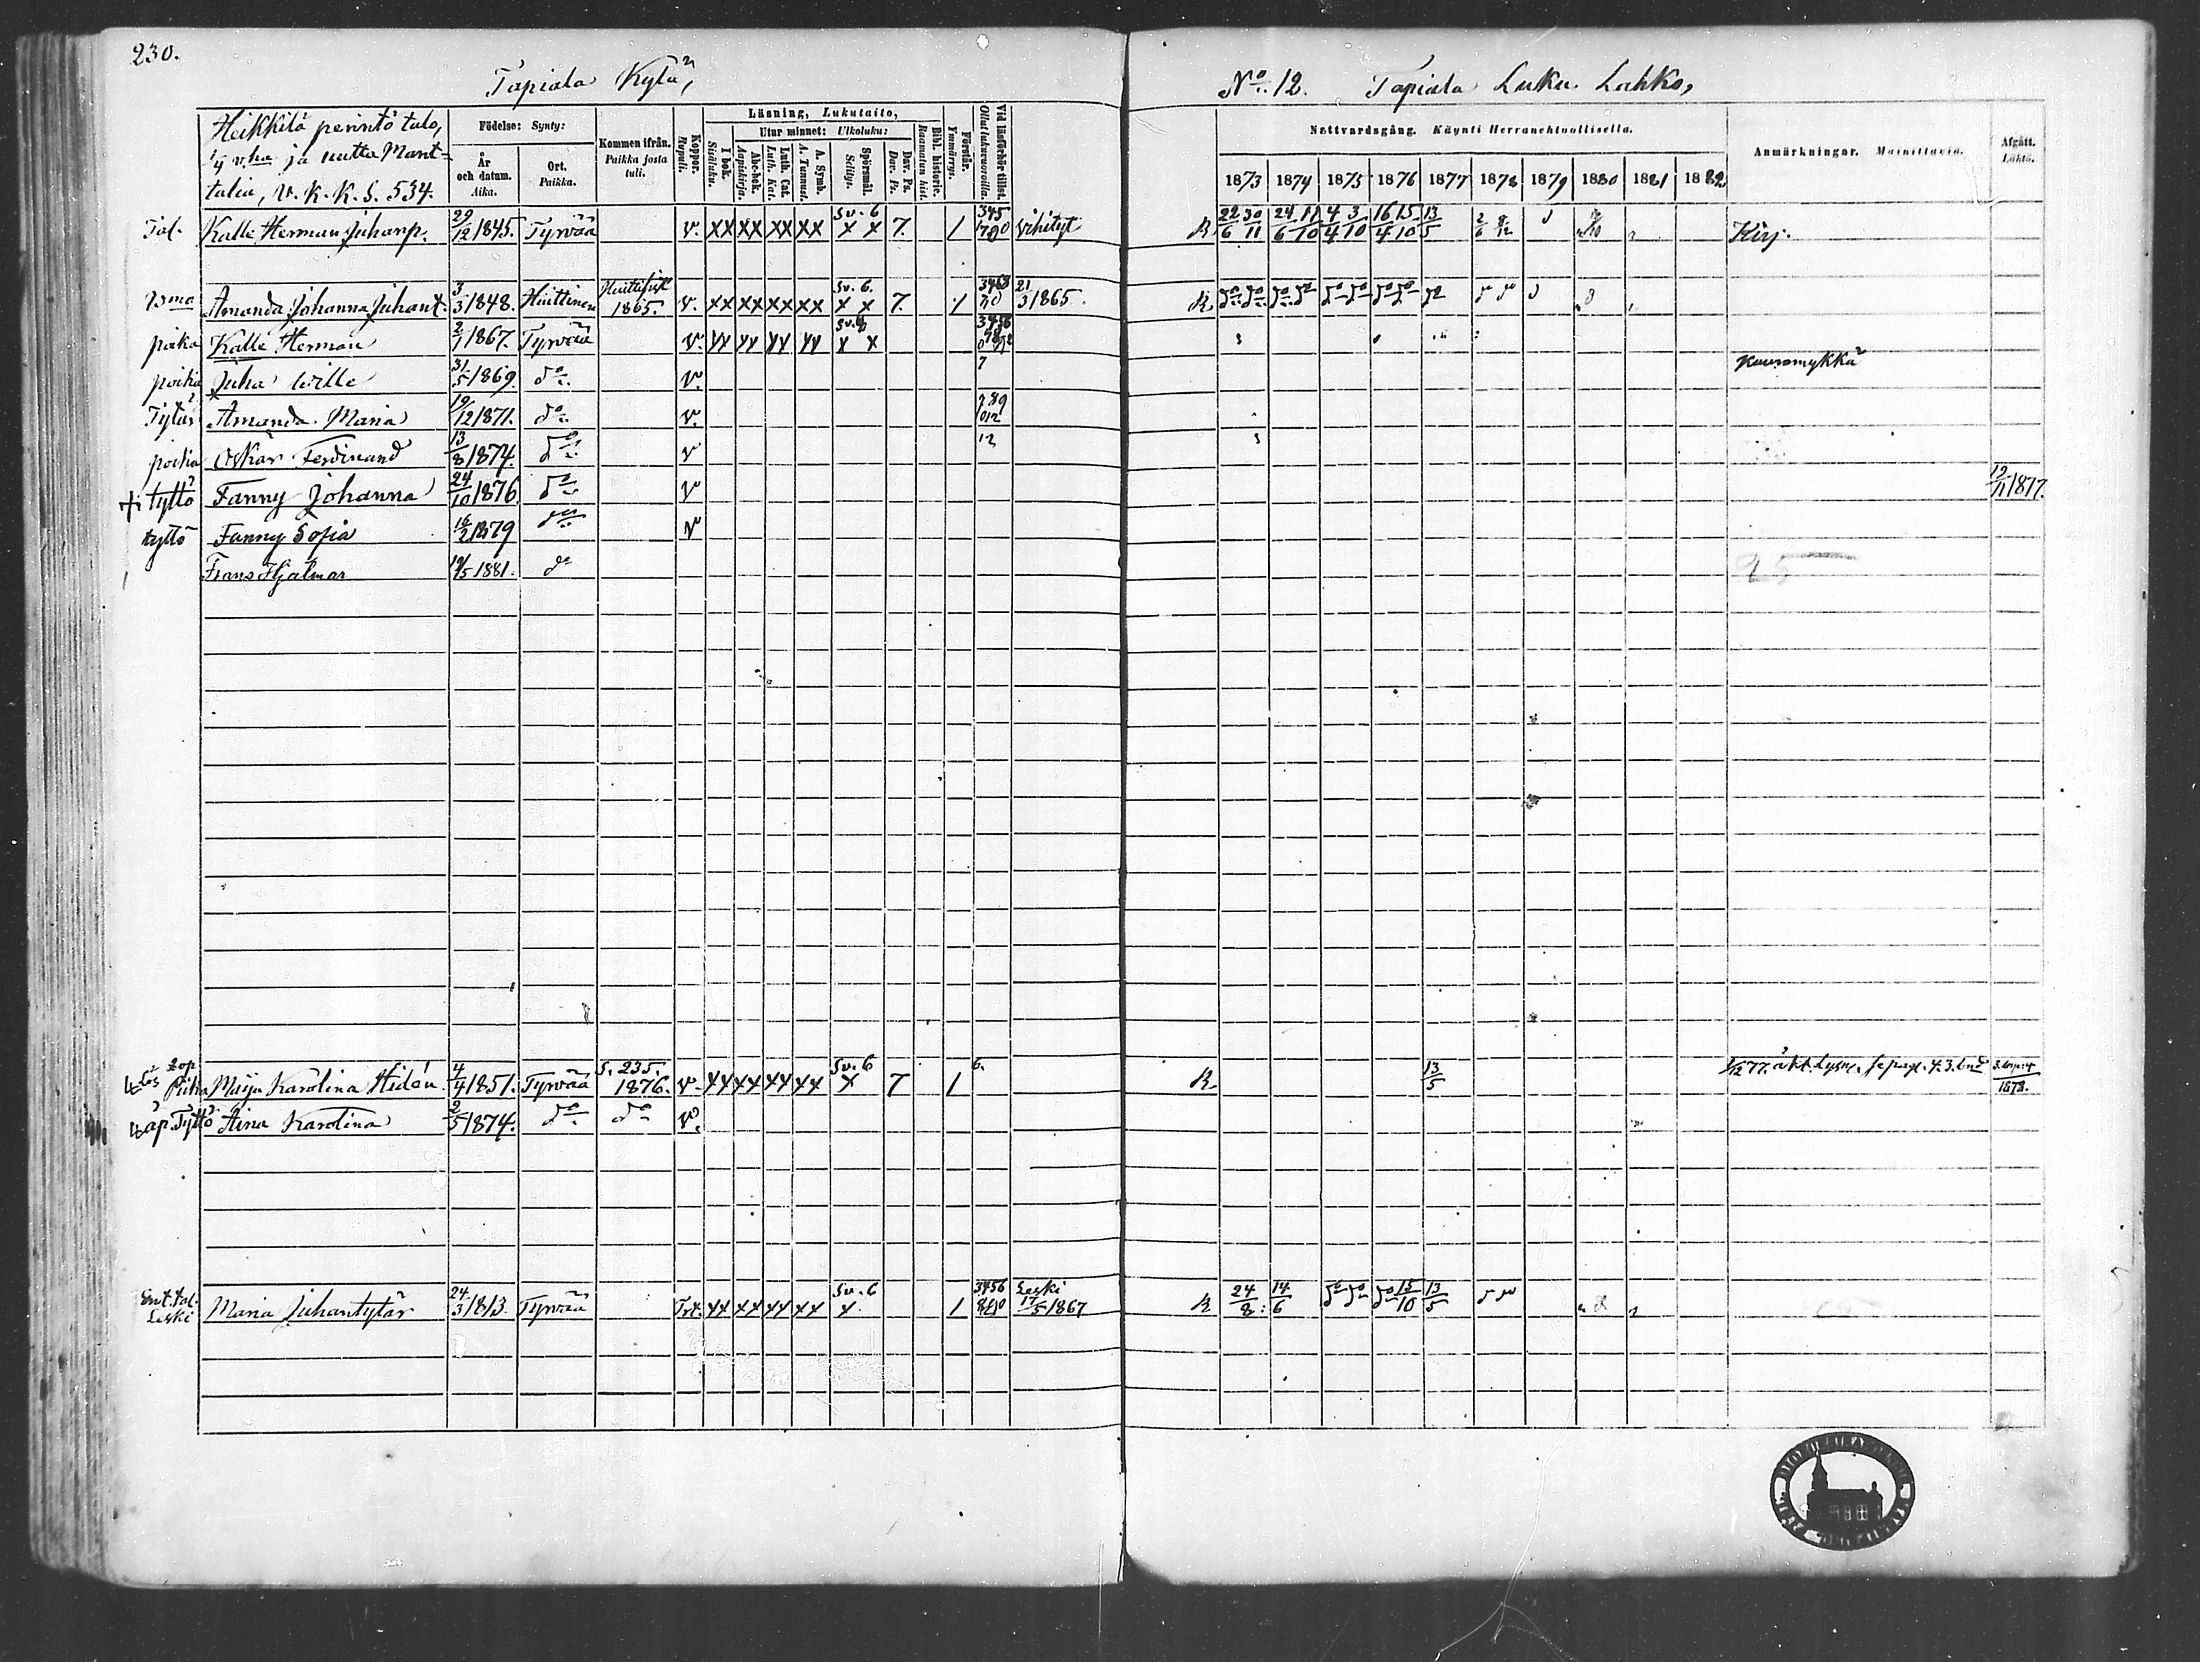 230.
Tapiala Kylä,
No 12. Tapiala Luku Lahko,
Heikkilä perintö talo,
¼ v.ha ja uutta Mant=
talia, V. K. K. S. 534.
Födelse: Synty:
År och datum. Aika.
Ort. Paikka.
Kommen ifrån. Paikka josta tuli.
Koppor. Rupuli.
Läsning, Lukutaito,
I bok. Sisäluku.
Utur minnet: Ulkoluku:
Abc-bok. Aapiskirja.
Luth. Cat. Luth. Kat.
A. Symb. A. Tunnust.
Spörsmål. Selitys.
Dav. Ps. Dav. Ps.
Bibl. historie. Raamatun hist.
Förstår. Ymmärrys.
Vid läsförhör tillst. Ollut lukuvuoroilla.
Nattvardsgång. Käynti Herranehtoollisella.
1873 1874 1875 1876 1877 1878 1879 1880 1881 1882
Anmärkningar. Muistettavia.
Afgått. Lähtö.
Tal. Kalle Herman Juhanp. 29/12 1845. Tyrvää v. XX XX XX XX Sv. 6 X X 7. / 345 vihityt R. 22/6 30/11 24/6 11/10 4/4 3/10 16/4 15/10 13/5 Kirj.
Amanda Johanna Juhant. 3/3 1848. Huittinen 1865. v. XX XX XX XX Sv. 6. X X 7. / 21/3 1865. R.
poika Kalle Herman 2/1 1867. Tyrvää v. XX XX XX XX X X
poika Juha Wille 31/5 1869. do v. 7 kuuromykkä
Tytär Amanda Maria 19/12 1871. do v. 789
poika Oskar Ferdinand 13/8 1874. do v 12
+ tyttö Fanny Johanna 24/10 1876. do v 19/11 1877.
tyttö Fanny Sofia 16/2 1879 do v
Frans Hjalmar 19/5 1881. do
25
Piika Maija Karolina Hidén 4/4 1851. Tyrvää S. 235. 1876. v. XX XX XX XX Sv. 6 X 7 / 6. R. 13/5 1878.
äp. Tyttö Aina Karolina 2/5 1874. do do v.
Ent. tal. Leski Maria Juhantytär 24/3 1813. Tyrvää XX XX XX XX Sv. 6 X. / 3456 Leski 17/5 1867 R 24/8 14/6 do do do 15/10 13/5